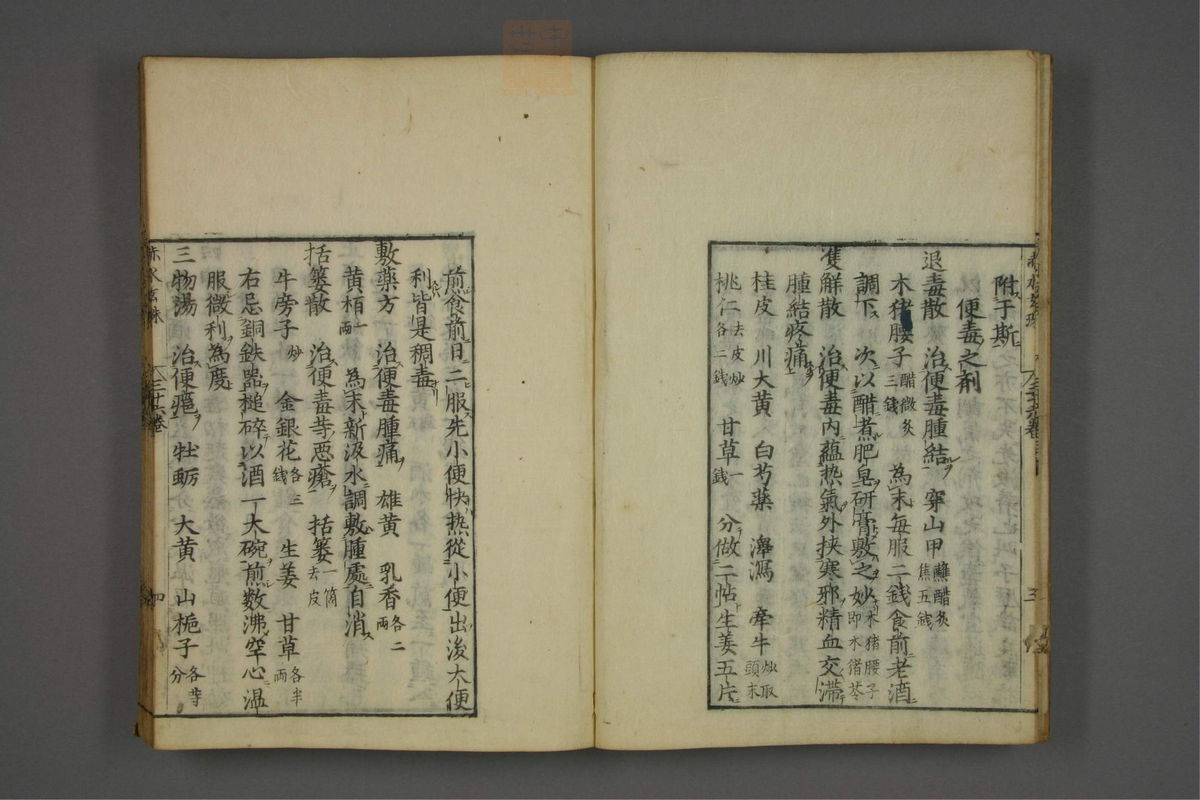 附于斯
便毒之剤
退毒散 治便毒腫結 穿山甲蘸醋炙焦五錢
木猪腰子醋微炙三錢 為末每服二錢食前老酒
調下 次以醋煮肥皂研膏敷之妙木猪腰子即木猪苓
隻解散 治便毒内蘊热氣外挟寒邪精血交滞
腫結疼痛
桂皮 川大黄 白芍藥 澤瀉 牵牛炒取頭末
桃仁去皮炒各二錢 甘草一錢 分做二帖生姜五片
煎食前日二服先小便快热從小便出後大便
利皆是稠毒
敷藥方 治便毒腫痛 雄黄 乳香各二兩
黄栢一兩 為末新汲水調敷腫處自消
括蔞散 治便毒等恶瘡 括蔞一箇去皮
牛旁子炒 金銀花各三錢 生姜 甘草各半兩
右忌銅鉄器槌碎以酒一大碗煎数沸空心温
服微利為度
三物湯 治便癰 牡蛎 大黄 山梔子各等分
赤水玄珠